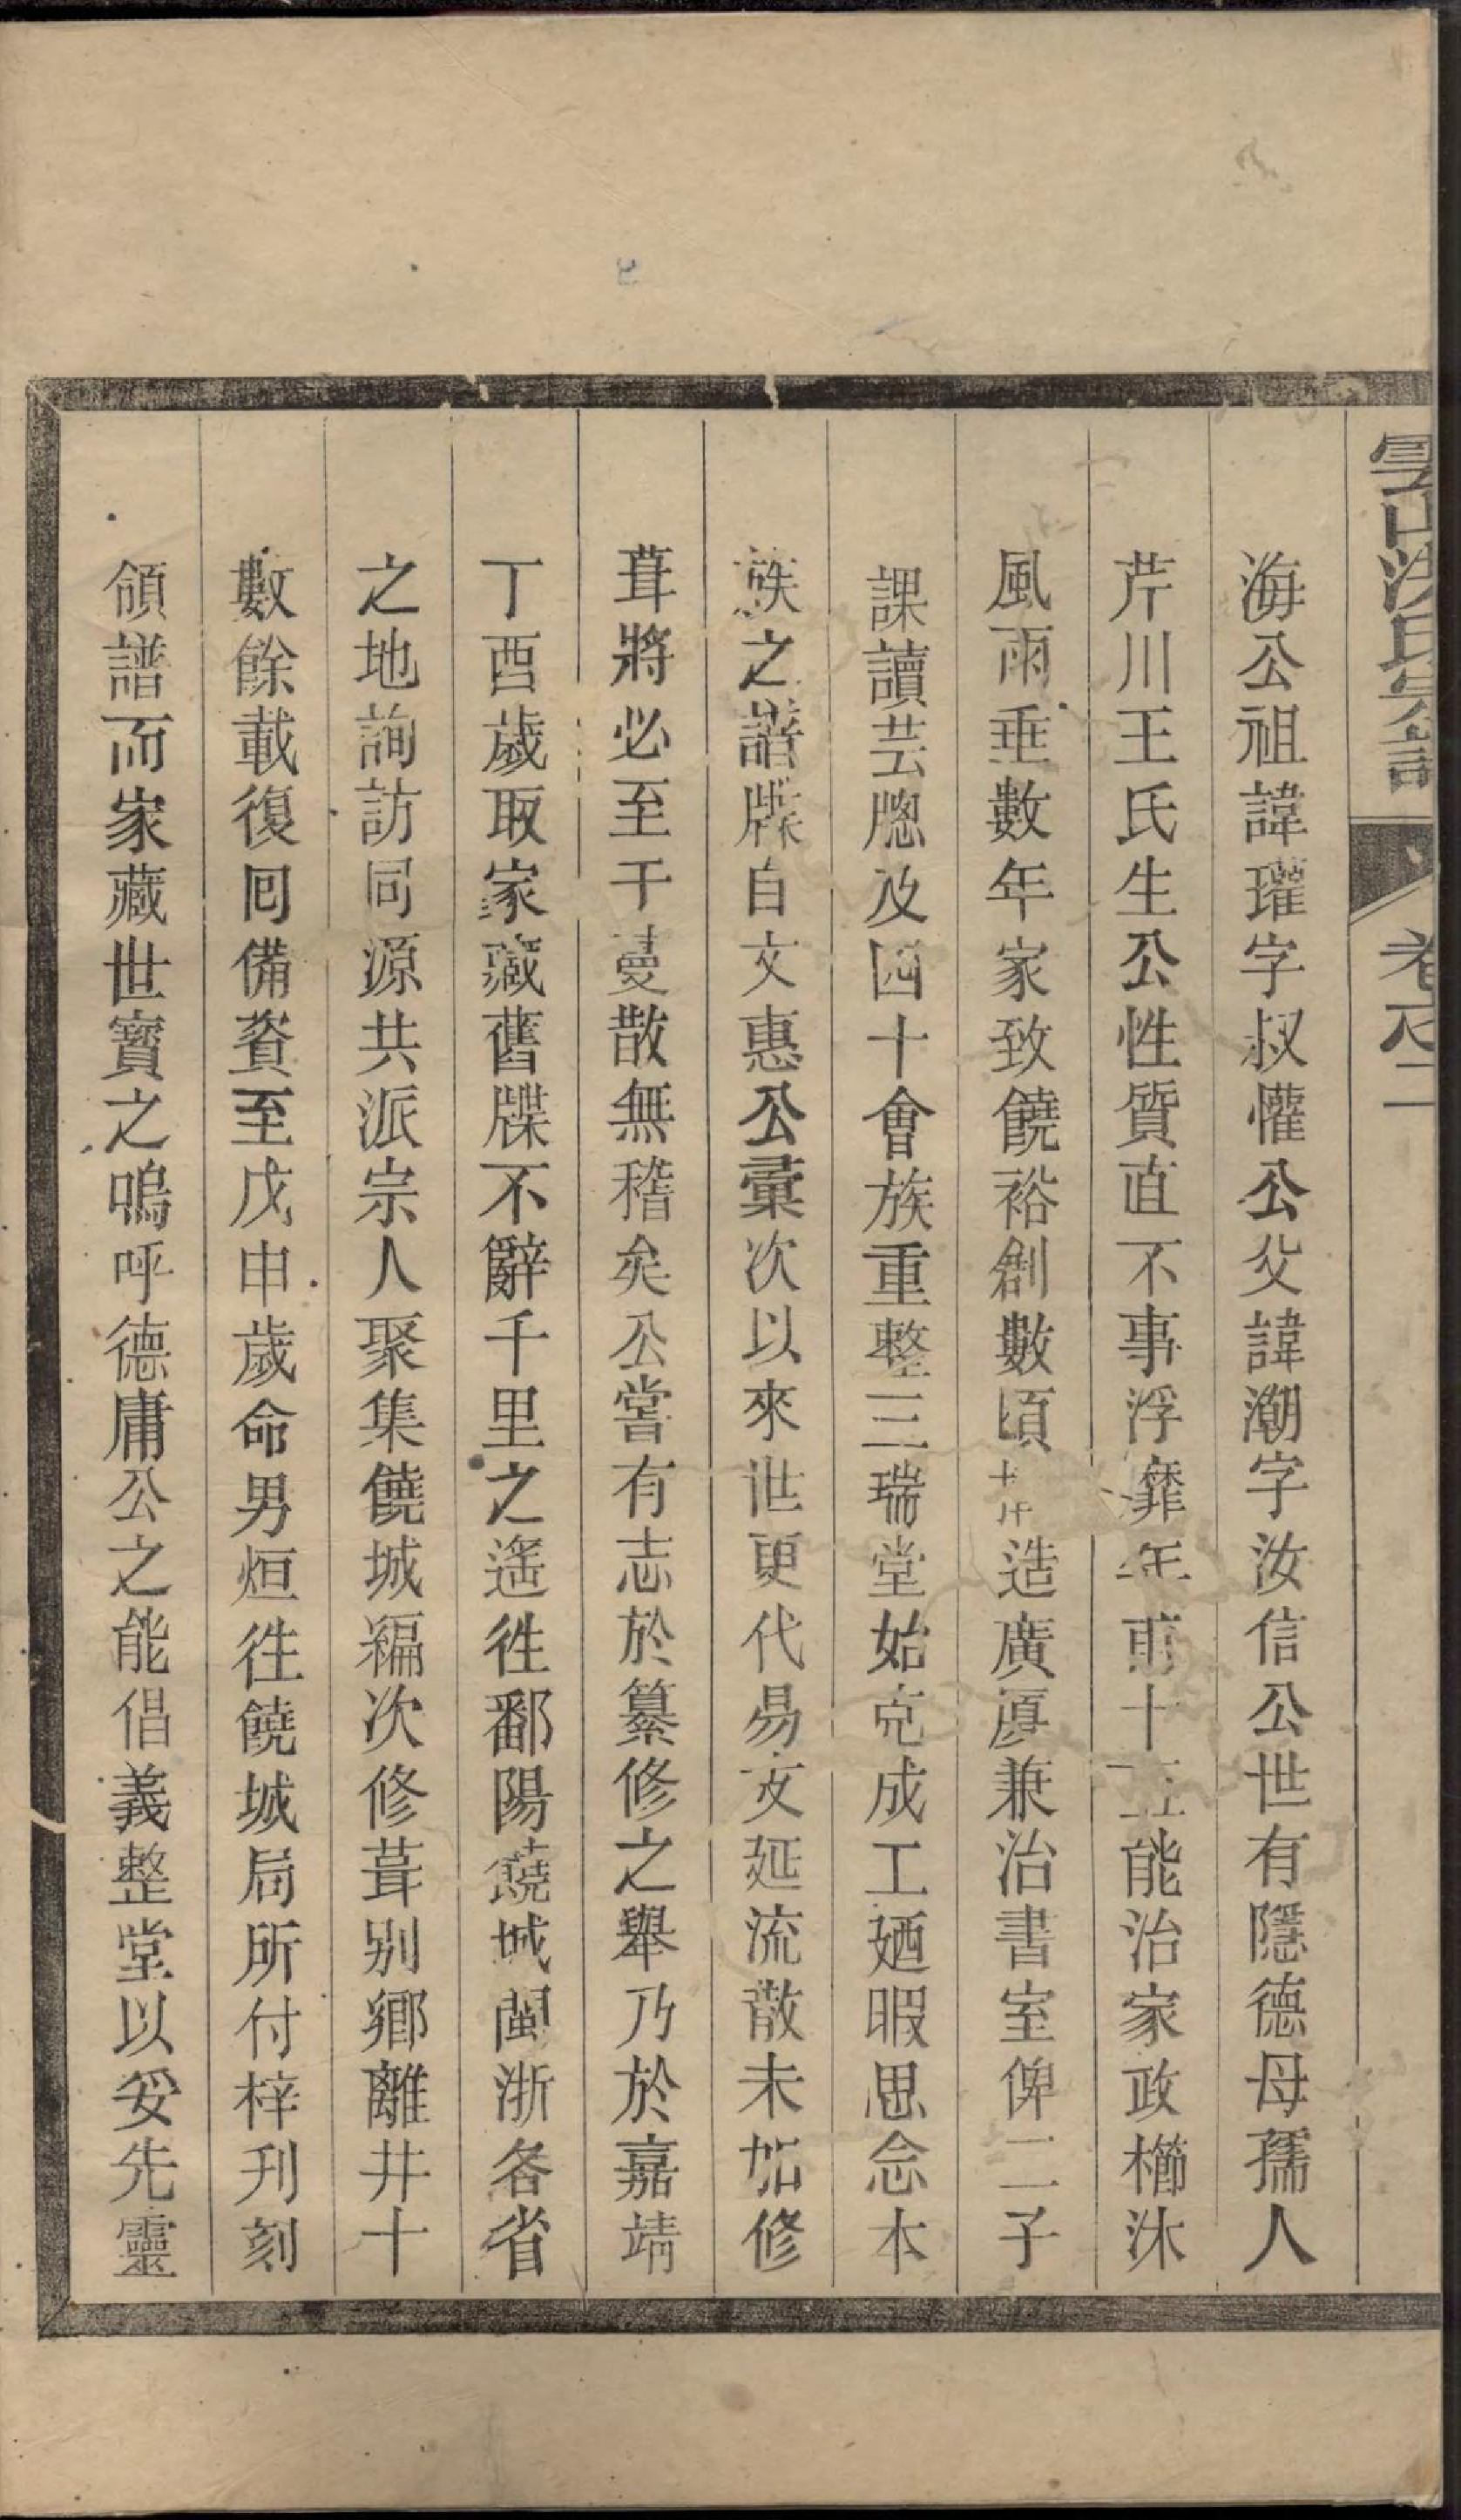 雲山洪氏宗譜 卷之二
海公祖諱瓘字叔懽公父諱潮字汝信公世有隱德母孺人
芹川王氏生公性質直不事浮靡年甫十五能治家政櫛沐
風雨垂數年家致饒裕創數頃造廣廈兼治書室俾二子
課讀芸牕及四十會族重整三瑞堂始克成工廼暇思念本
族之譜牒自文惠公彙次以來世更代易支延流散未加修
葺將必至于蔓散無稽矣公嘗有志於纂修之舉乃於嘉靖
丁酉歲取家藏舊牒不辭千里之遙徃鄱陽饒城閩浙各省
之地詢訪同源共派宗人聚集饒城編次修葺别鄉離井十
數餘載復囘備資至戊申歲命男烜徃饒城局所付梓刋刻
領譜而家藏世寳之嗚呼德庸公之能倡義整堂以妥先靈